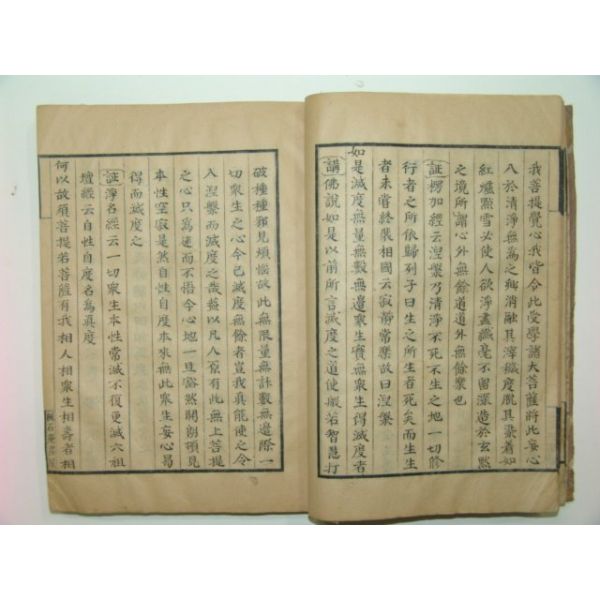 我菩提覺心我皆令此受學諸大菩薩將此妄心
入於清淨無為之鄉消融其渾穢度脫其業着如
紅爐點雪必使人欲淨盡纖毫不留深造於玄默
之境所謂心外無餘道道外無餘業也
証楞加經云涅槃乃清淨不死不生之地一切修
行者之所依歸列子曰生之所生者死矣而生生
者未嘗終裴相國云寂靜常樂故曰涅槃
如是滅度無量無數無邊衆生實無衆生得滅度者
講佛說如是以前所言滅度之道使般若智慧打
破種種邪見煩惱故此無限量無計數無邊際一
切衆生之心今已滅度無餘者豈我真能使之令
入涅槃而滅度之哉蓋以凡人原有此無上菩提
之心只為迷而不悟今心地一旦豁然開朗頓見
本性空寂是然自性自度本來無此衆生妄心曷
得而滅度之
証淨名經云一切衆生本性常滅不復更滅六祖
壇經云自性自度名為真度
何以故須菩提若菩薩有我相人相衆生相壽者相